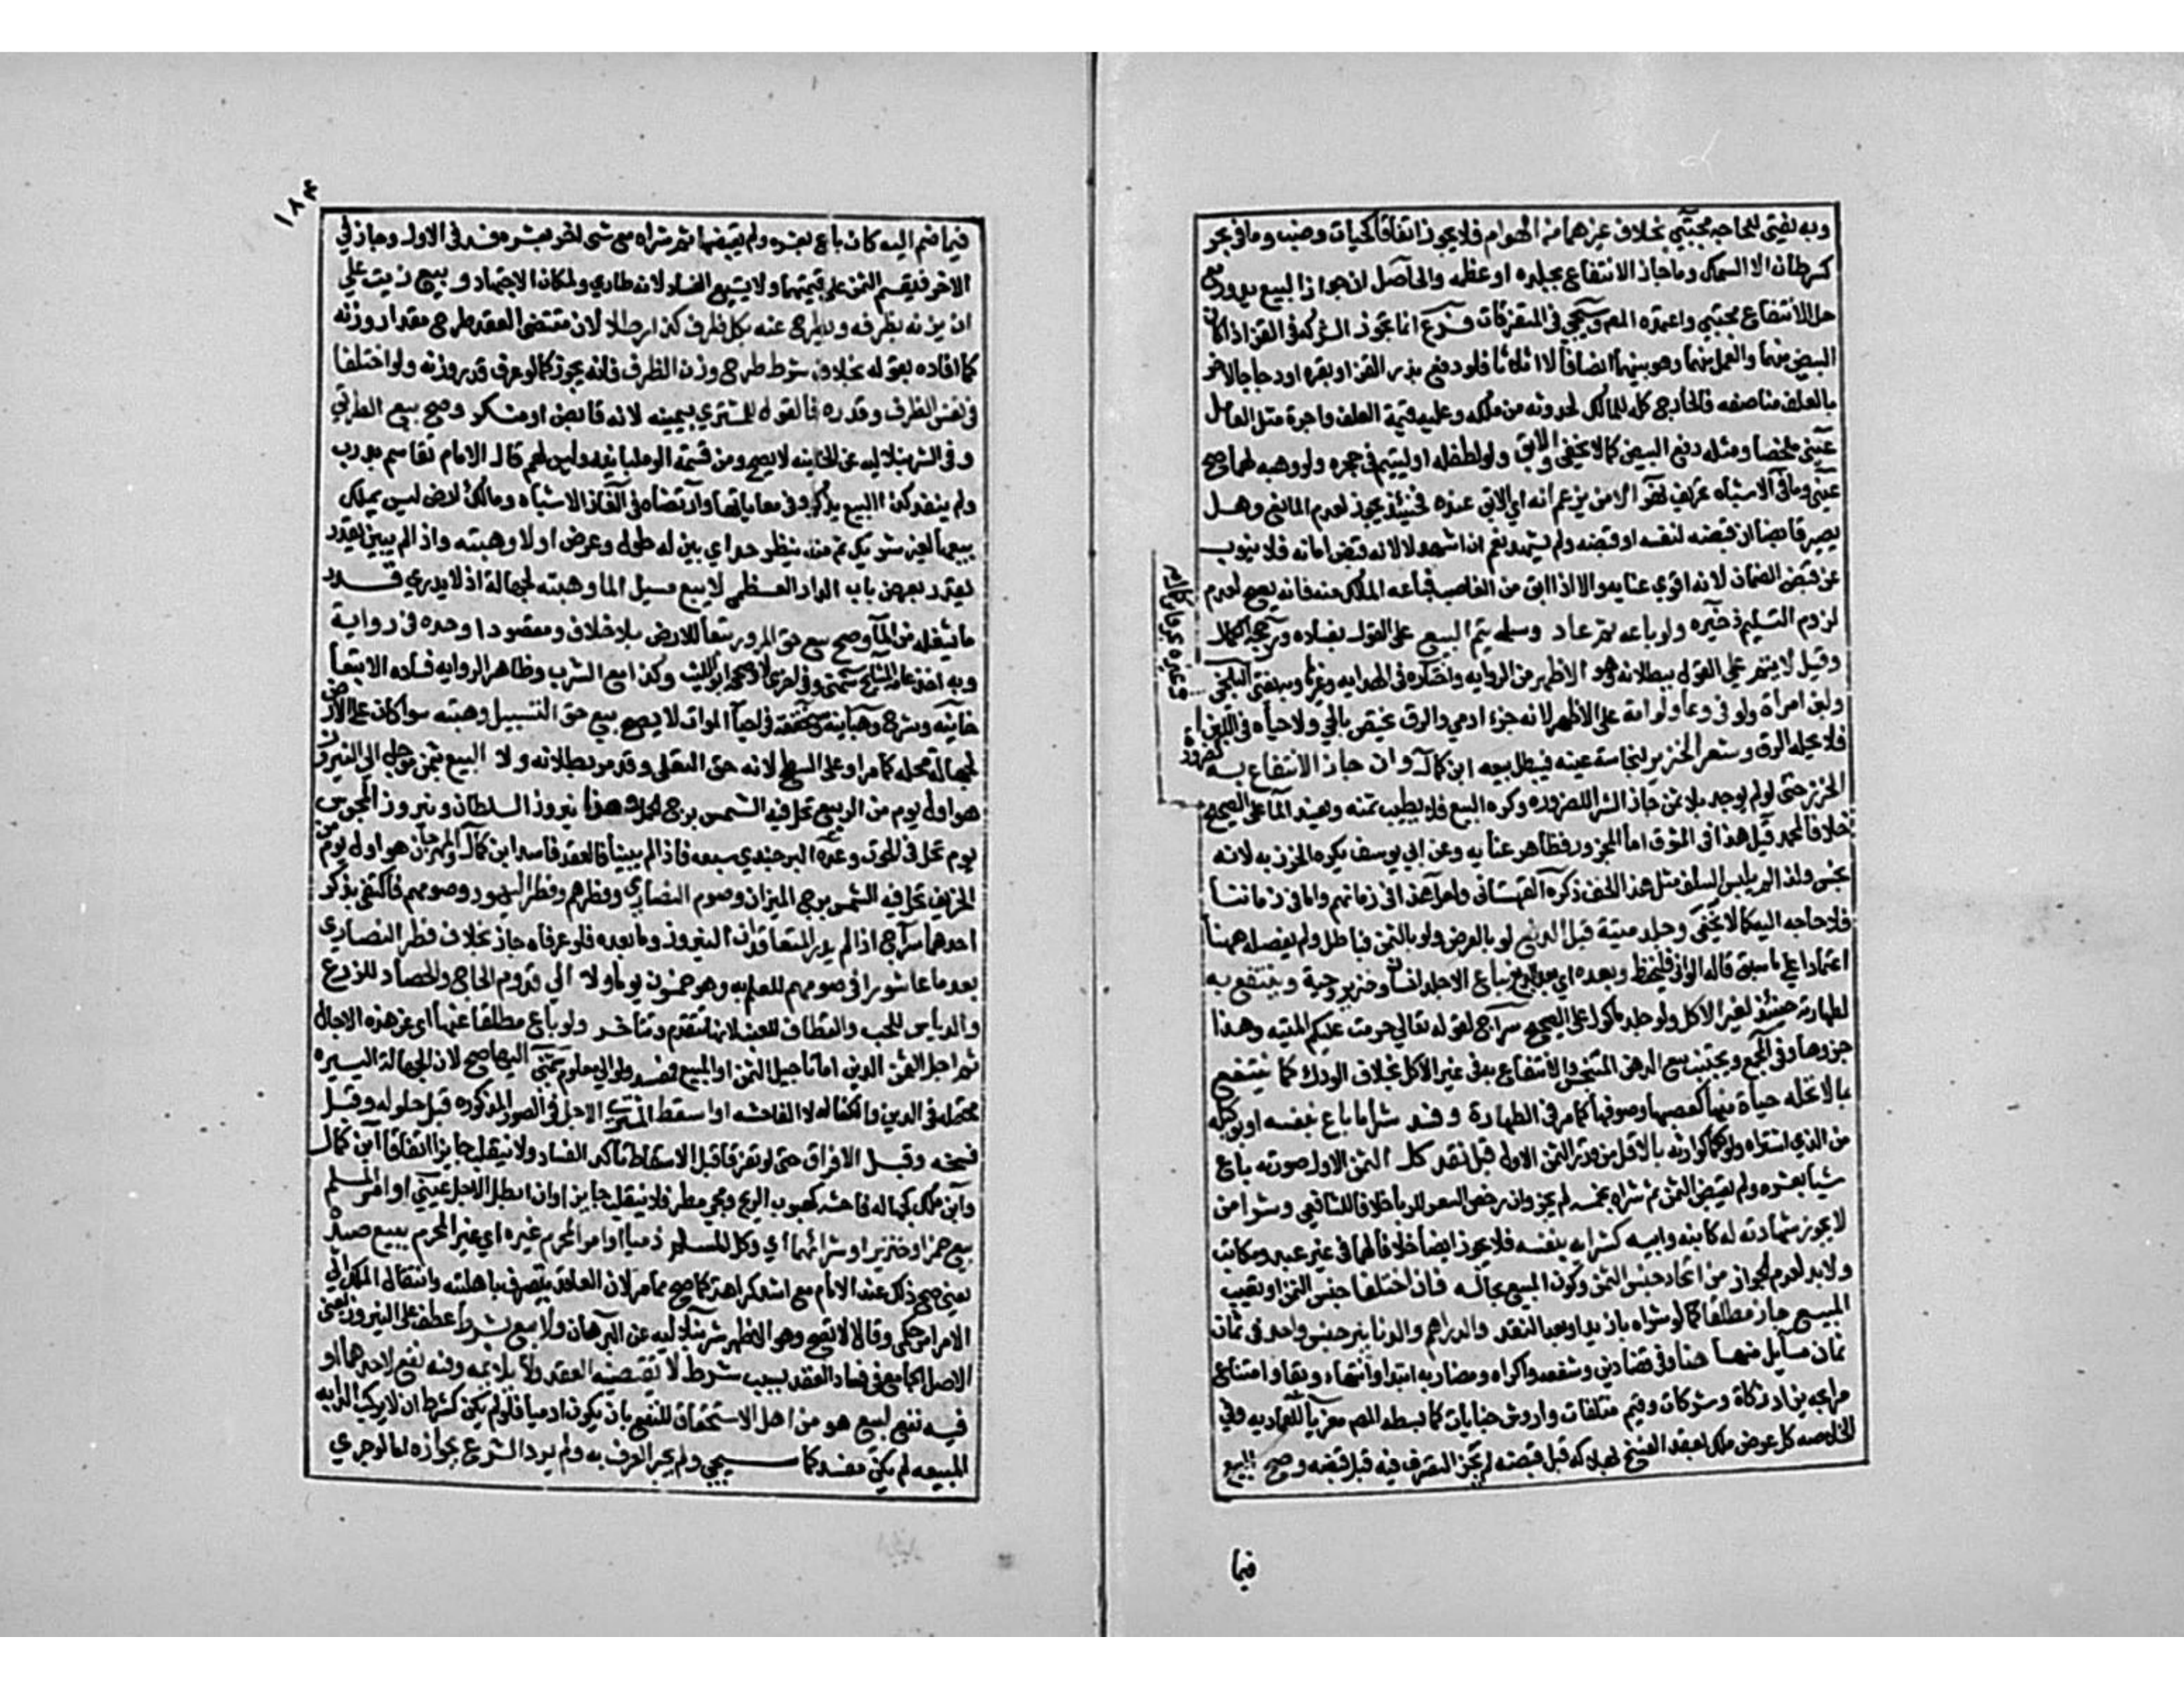 وبه يفتى للحاجة مجتبى بخلاف غيرهما من الهوام فلا يجوز اتفاقا كحيات وضب وما في بحر
كسرطان الا السمك وما جاز الانتفاع بجلده او عظمه والحاصل ان جواز البيع يدور مع
حل الانتفاع مجتبى واعتمده المص وسيجي في المتفرقات فرع انما تجوز الشركة في القز اذا كان
البيض منهما والعمل منهما وهو بينهما انصافا لا اثلاثا فلو دفع بذر القز او بقرة او دجاجا لاخر
بالعلف مناصفه فالخارج كله للمالك لحدوثه من ملكه وعليه قيمة العلف واجرة مثل العامل
عيني ملخصا ومثله دفع البيض كما لا يخفى والابق ولو لطفله او ليتيم في حجره ولو وهبه لهما صح
عيني وما في الاشباه تحريف لهو الا من يزعم انه اي الابق عنده فحينئذ يجوز لعدم المانع وهل
يصير قابضا ان قبضه لنفسه او قبضه ولم يشهد نعم ان اشهد لا لانه قبض امانه فلا ينوب
عن قبض الضمان لانه اقوي عنايه والا اذا ابق من الغاصب فباعه المالك منه فانه يصح لعدم
لزوم التسليم ذخيره ولو باعه ثم عاد وسلمه يتم البيع على القول بفساده ورجحه الكمال
وقيل لا يتم على القول ببطلانه وهو الاظهر من الروايه واختاره في الهدايه وغيرها وبه يفتي البلخي
ولبن امراة ولو في وعاء ولو امة على الاظهر لانه جزء ادمي والرق يختص بالحي ولا حياة في اللبن
فلا يحله الرق وشعر الخنزير لنجاسة عينه فيبطل بيعه ابن كمال وان جاز الانتفاع به لضرورة
الخرز حتى لو لم يوجد بلا ثمن جاز الشرا للضروره وكره البيع فلا يطيب ثمنه ويفسد الما على الصحيح
خلافا لمحمد قيل هذا في المنتوف اما المجزوز فطاهر عنايه وعن ابي يوسف يكره الخرز به لانه
نجس ولذا لم يلبس السلف مثل هذا الخف ذكره القهستاني ولعل هذا في زمانهم واما في زماننا
فلا حاجه اليه كما لا يخفى وجلد ميتة قبل الدبغ لو بالعرض ولو بالثمن فباطل ولم يفصله ههنا
اعتمادا على ما سبق قاله الواني فليحفظ وبعده اي بعد الدبغ يباع الا جلد انسان وخنزير وحية وينتفع به
لطهارته حينئذ لغير الاكل ولو جلد ماكول على الصحيح سراج لقوله تعالى حرمت عليكم الميته وهذا
جزوها وفي المجمع ونجيز بيع الدهن المتنجس والانتفاع به في غير الاكل بخلاف الودك كما ينتفع
بما لا تحله حياة منها كعصبها وصوفها كما مر في الطهارة وفسد شرا ما باع بنفسه او بوكيله
من الذي اشتراه ولو حكما كوارثه بالاقل من قدر الثمن الاول قبل نقد كل الثمن الاول صورته باع
شيا بعشره ولم يقبض الثمن ثم شراه بخمسه لم يجز وان رخص السعر للربا خلافا للشافعي وشرا من
لا يجوز شهادته له كابنه وابيه كشرايه بنفسه فلا يجوز ايضا خلافا لهما في غير عبده ومكاتبه
ولا بد لعدم الجواز من اتحاد جنس الثمن وكون المبيع بحاله فان اختلفا جنس الثمن او تعيب
المبيع جاز مطلقا كما لو شراه بازيد او بعد النقد والدراهم والدنانير جنس واحد في ثمان
ثمان مسايل منها هنا وفي قضا دين وشفعه واكراه ومضاربه ابتدا وانتهاء وبقا وامتناع
مرابحه يزاد زكاة وشركات وقيم متلفات واروش جنايات كما بسطه المص معزيا للعماديه وفي
الخلاصه كل عوض ملك بعقد ينفسخ بهلاكه قبل قبضه لم يجز التصرف فيه قبل قبضه وصح البيع
فيما
١٨٣
فيما ضم اليه كان باع بعشره ولم يقبضها ثم شراه مع شي اخر بعشره فسد في الاول وجاز في
الاخر فيقسم الثمن على قيمتهما ولا يشيع الفساد لانه طاري ولمكان الاجتهاد وبيع زيت على
ان يزنه بظرفه ويطرح عنه بكل ظرف كذا رطلا لان مقتضى العقد طرح مقدار وزنه
كما افاده بقوله بخلاف شرط طرح وزن الظرف فانه يجوز كما لو عرف قدر وزنه ولو اختلفا
في نفس الظرف وقدره فالقول للمشتري بيمينه لانه قابض او منكر وصح بيع الطريق
وفي الشرنبلاليه عن الخانيه لا يصح ومن قسمة الوهبانيه وليس لهم قال الامام تقاسم بدرب
ولم ينفذ كذا البيع يذكر وفي معاياتها وارتضاه في الغاز الاشباه ومالك لارض ليس يملك
بيعها لغير شريك ثم منه ينظر حد اي بين له طول وعرض اولا وهبته واذا لم يبين يقدر
بقدر بعرض باب الدار العظمى لا بيع مسيل الما وهبته لجهالته اذ لا يدري قدر
ما يشغله من الما وصح بيع حق المرور تبعا للارض بلا خلاف ومقصودا وحده في رواية
وبه اخذ عامة المشايخ شمني وفي اخرى لا وصححه ابو الليث وكذا بيع الشرب وظاهر الروايه فساده الا تبعا
خانيه وشرح وهبانيه وسنحققه في احيا الموات لا يصح بيع حق التسييل وهبته سوا كان على الارض
لجهالة محله كما مر او على السطح لانه حق التعلي وقد مر بطلانه ولا البيع بثمن مؤجل الى النيروز
هو اول يوم من الربيع تحل فيه الشمس برج الحمل وهذا نيروز السلطان ونيروز المجوس
يوم تحل في الحوت وعده البرجندي سبعه فاذا لم يبينا فالعقد فاسد ابن كمال والمهرجان هو اول يوم من
الخريف تحل فيه الشمس برج الميزان وصوم النصارى وفطرهم وفطر اليهود وصومهم فاكتفى بذكر
احدهما سراج اذا لم يدر المتعاقدان النيروز وما بعده فلو عرفاه جاز بخلاف فطر النصارى
بعد ما شرعوا في صومهم للعلم به وهو خمسون يوما ولا الى قدوم الحاج والحصاد للزرع
والدياس للحب والقطاف للعنب لانها تتقدم وتتاخر ولو باع مطلقا عنها اي عن هذه الاجال
ثم اجل الثمن الدين اما تاجيل الثمن او المبيع فمفسد ولو الى معلوم شمني اليها صح لان الجهالة اليسيره
محتمله في الدين والكفاله لا الفاحشه او اسقط المشتري الاجل في الصور المذكوره قبل حلوله وقبل
فسخه وقبل الافتراق حتى لو تفرقا قبل الاسقاط تاكد الفساد ولا ينقلب جايزا اتفاقا ابن كمال
وابن ملك كجهاله فاحشه كهبوب الريح ومجي مطر فلا ينقلب جايزا وان ابطل الاجل عيني او امر المسلم
بيع خمر او خنزير او شرائهما اي وكل المسلم ذميا او امر المحرم غيره اي غير المحرم ببيع صيده
يعني صح ذلك عند الامام مع اشد كراهة كما صح ما مر لان العاقد يتصرف باهليته وانتقال الملك الى
الامر امر حكمي وقالا لا يصح وهو الاظهر شرنبلاليه عن البرهان ولا بيع بشرط عطف على النيروز يعني
الاصل الجامع في فساد العقد بسبب شرط لا يقتضيه العقد ولا يلايمه وفيه نفع لاحدهما او
فيه نفع لمبيع هو من اهل الاستحقاق للنفع بان يكون ادميا فلو لم يكن كشرط ان لا يركب الدابه
المبيعه لم يكن مفسدا كما سيجي ولم يجر العرف به ولم يرد الشرع بجوازه اما لو جرى